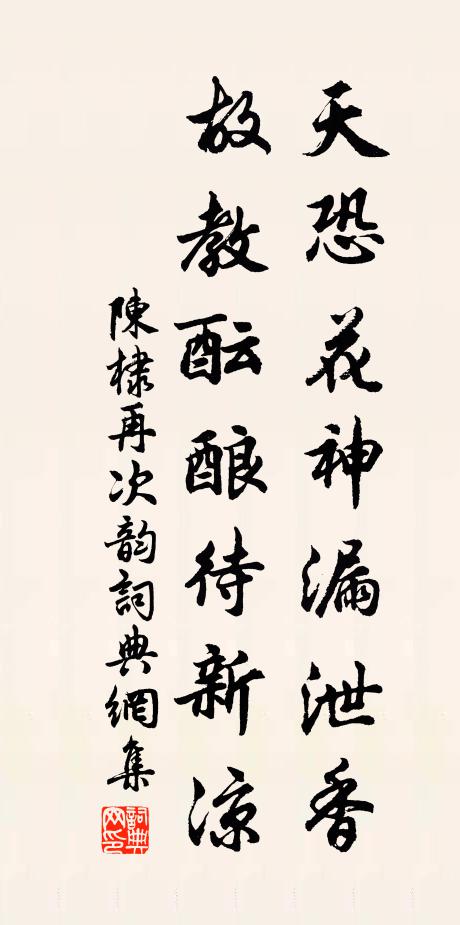 天恐花神漏泄香
故教酝酿待新凉
陳棣再次韵詞典網集
詞典网印